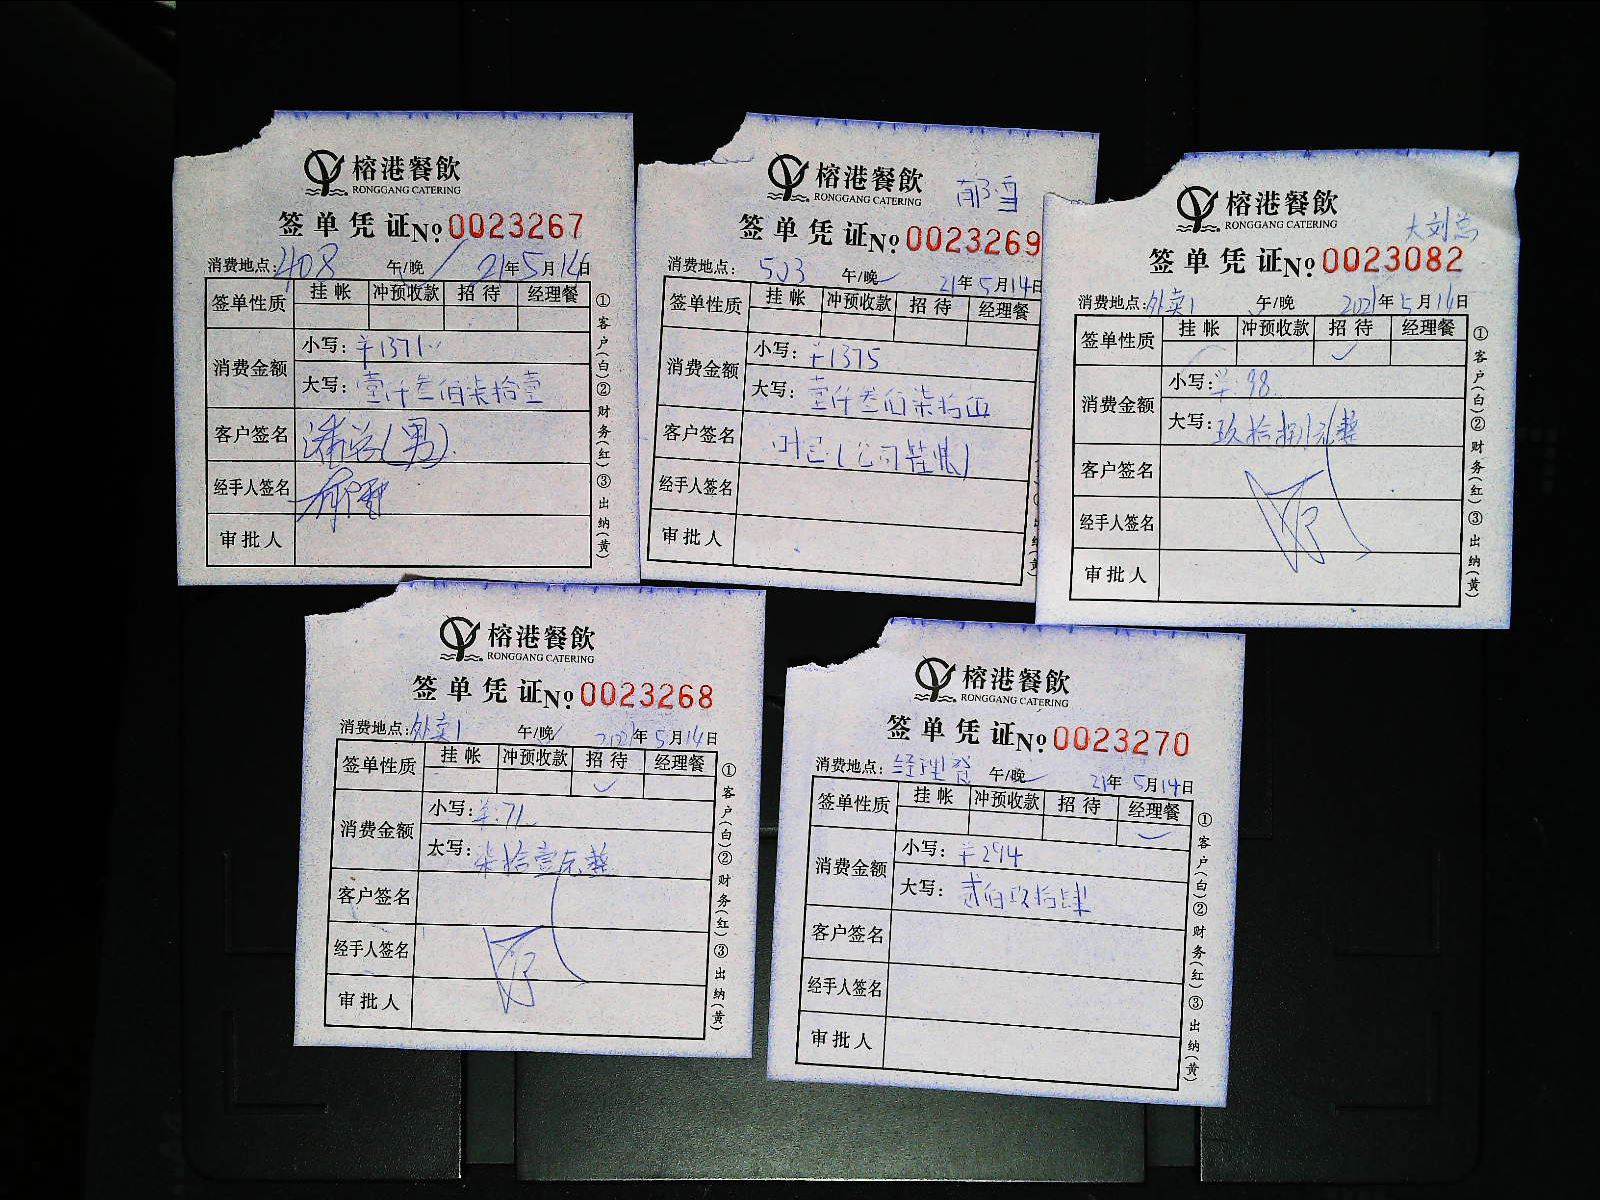 榕港餐飲
RONGGANG CATERING
签单凭证 No. 0023267
消费地点: 408 午/晚 21年5月14日
签单性质 挂帐 冲预收款 招待 经理餐
消费金额
小写: ¥1371
大写: 壹仟叁佰柒拾壹
客户签名 潘总(男)
经手人签名
审批人
①客户(白)②财务(红)③出纳(黄)
榕港餐飲
RONGGANG CATERING
签单凭证 No. 0023269
消费地点: 503 午/晚 21年5月14日
签单性质 挂帐 冲预收款 招待 经理餐
消费金额
小写: ¥1375
大写: 壹仟叁佰柒拾伍
客户签名 叶总(公司挂帐)
经手人签名
审批人
榕港餐飲
RONGGANG CATERING
大刘总
签单凭证 No. 0023082
消费地点: 外卖1 午/晚 2021年5月14日
签单性质 挂帐 冲预收款 招待 经理餐
消费金额
小写: ¥:98
大写: 玖拾捌元整
客户签名
经手人签名
审批人
①客户(白)②财务(红)③出纳(黄)
榕港餐飲
RONGGANG CATERING
签单凭证 No. 0023268
消费地点: 外卖1 午/晚 2021年5月14日
签单性质 挂帐 冲预收款 招待 经理餐
消费金额
小写: ¥:71
大写: 柒拾壹元整
客户签名
经手人签名
审批人
①客户(白)②财务(红)③出纳(黄)
榕港餐飲
RONGGANG CATERING
签单凭证 No. 0023270
消费地点: 经理餐 午/晚 21年5月14日
签单性质 挂帐 冲预收款 招待 经理餐
消费金额
小写: ¥294
大写: 贰佰玖拾肆
客户签名
经手人签名
审批人
①客户(白)②财务(红)③出纳(黄)